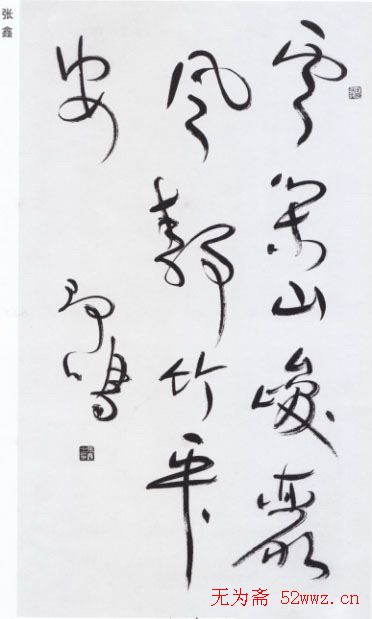 张鑫
雲山峻
風靜竹平
安
鳴
无为斋 52wwz.cn